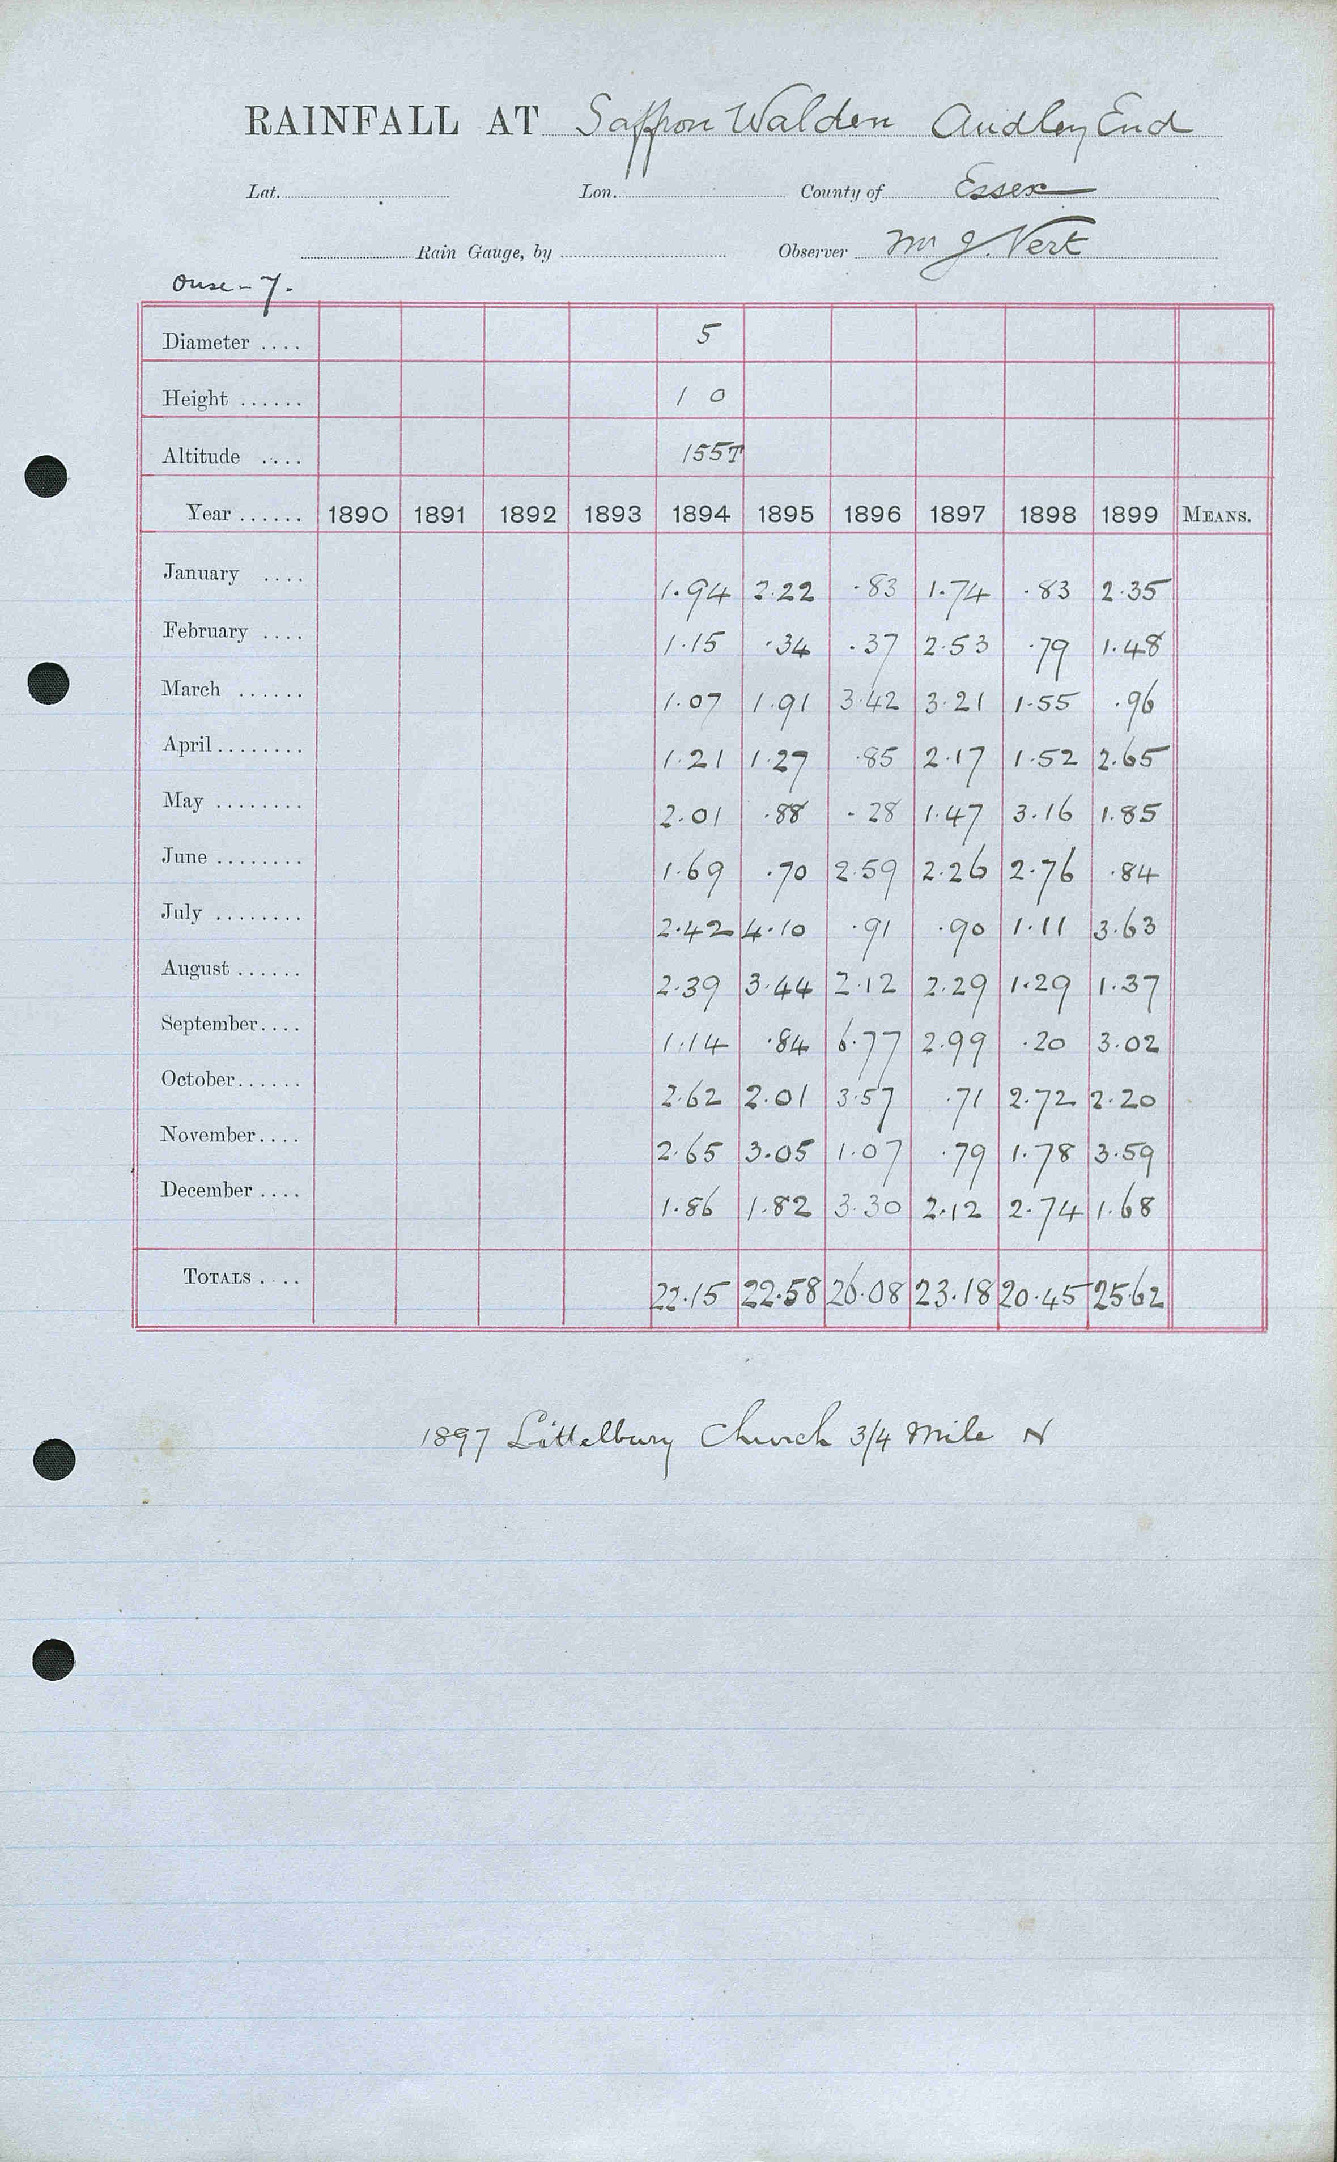 RAINFALL AT Saffron Walden Audley End
Lat. Lon. County of Essex
Rain Gauge, by Observer Mr J. Vert
Ouse - 7.
Diameter .... 5
Height ...... 1 0
Altitude .... 155T
Year ...... 1890 1891 1892 1893 1894 1895 1896 1897 1898 1899 MEANS.
January .... 1.94 2.22 .83 1.74 .83 2.35
February .... 1.15 .34 .37 2.53 .79 1.48
March ...... 1.07 1.91 3.42 3.21 1.55 .96
April ........ 1.21 1.27 .85 2.17 1.52 2.65
May ........ 2.01 .88 .28 1.47 3.16 1.85
June ........ 1.69 .70 2.59 2.26 2.76 .84
July ........ 2.42 4.10 .91 .90 1.11 3.63
August ...... 2.39 3.44 2.12 2.29 1.29 1.37
September.... 1.14 .84 6.77 2.99 .20 3.02
October...... 2.62 2.01 3.57 .71 2.72 2.20
November.... 2.65 3.05 1.07 .79 1.78 3.59
December .... 1.86 1.82 3.30 2.12 2.74 1.68
TOTALS .... 22.15 22.58 26.08 23.18 20.45 25.62
1897 Littelbury Church 3/4 Mile N